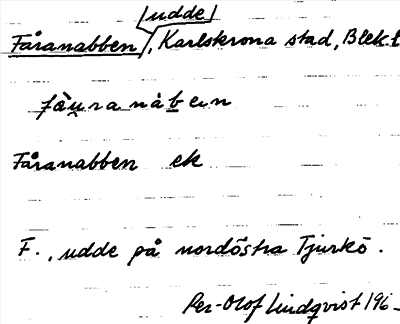 [udde]
Fåranabben, Karlskrona stad, Blek.
fàu̯ranàben
Fåranabben ek
F., udde på nordöstra Tjurkö.
Per-Olof Lindqvist 196